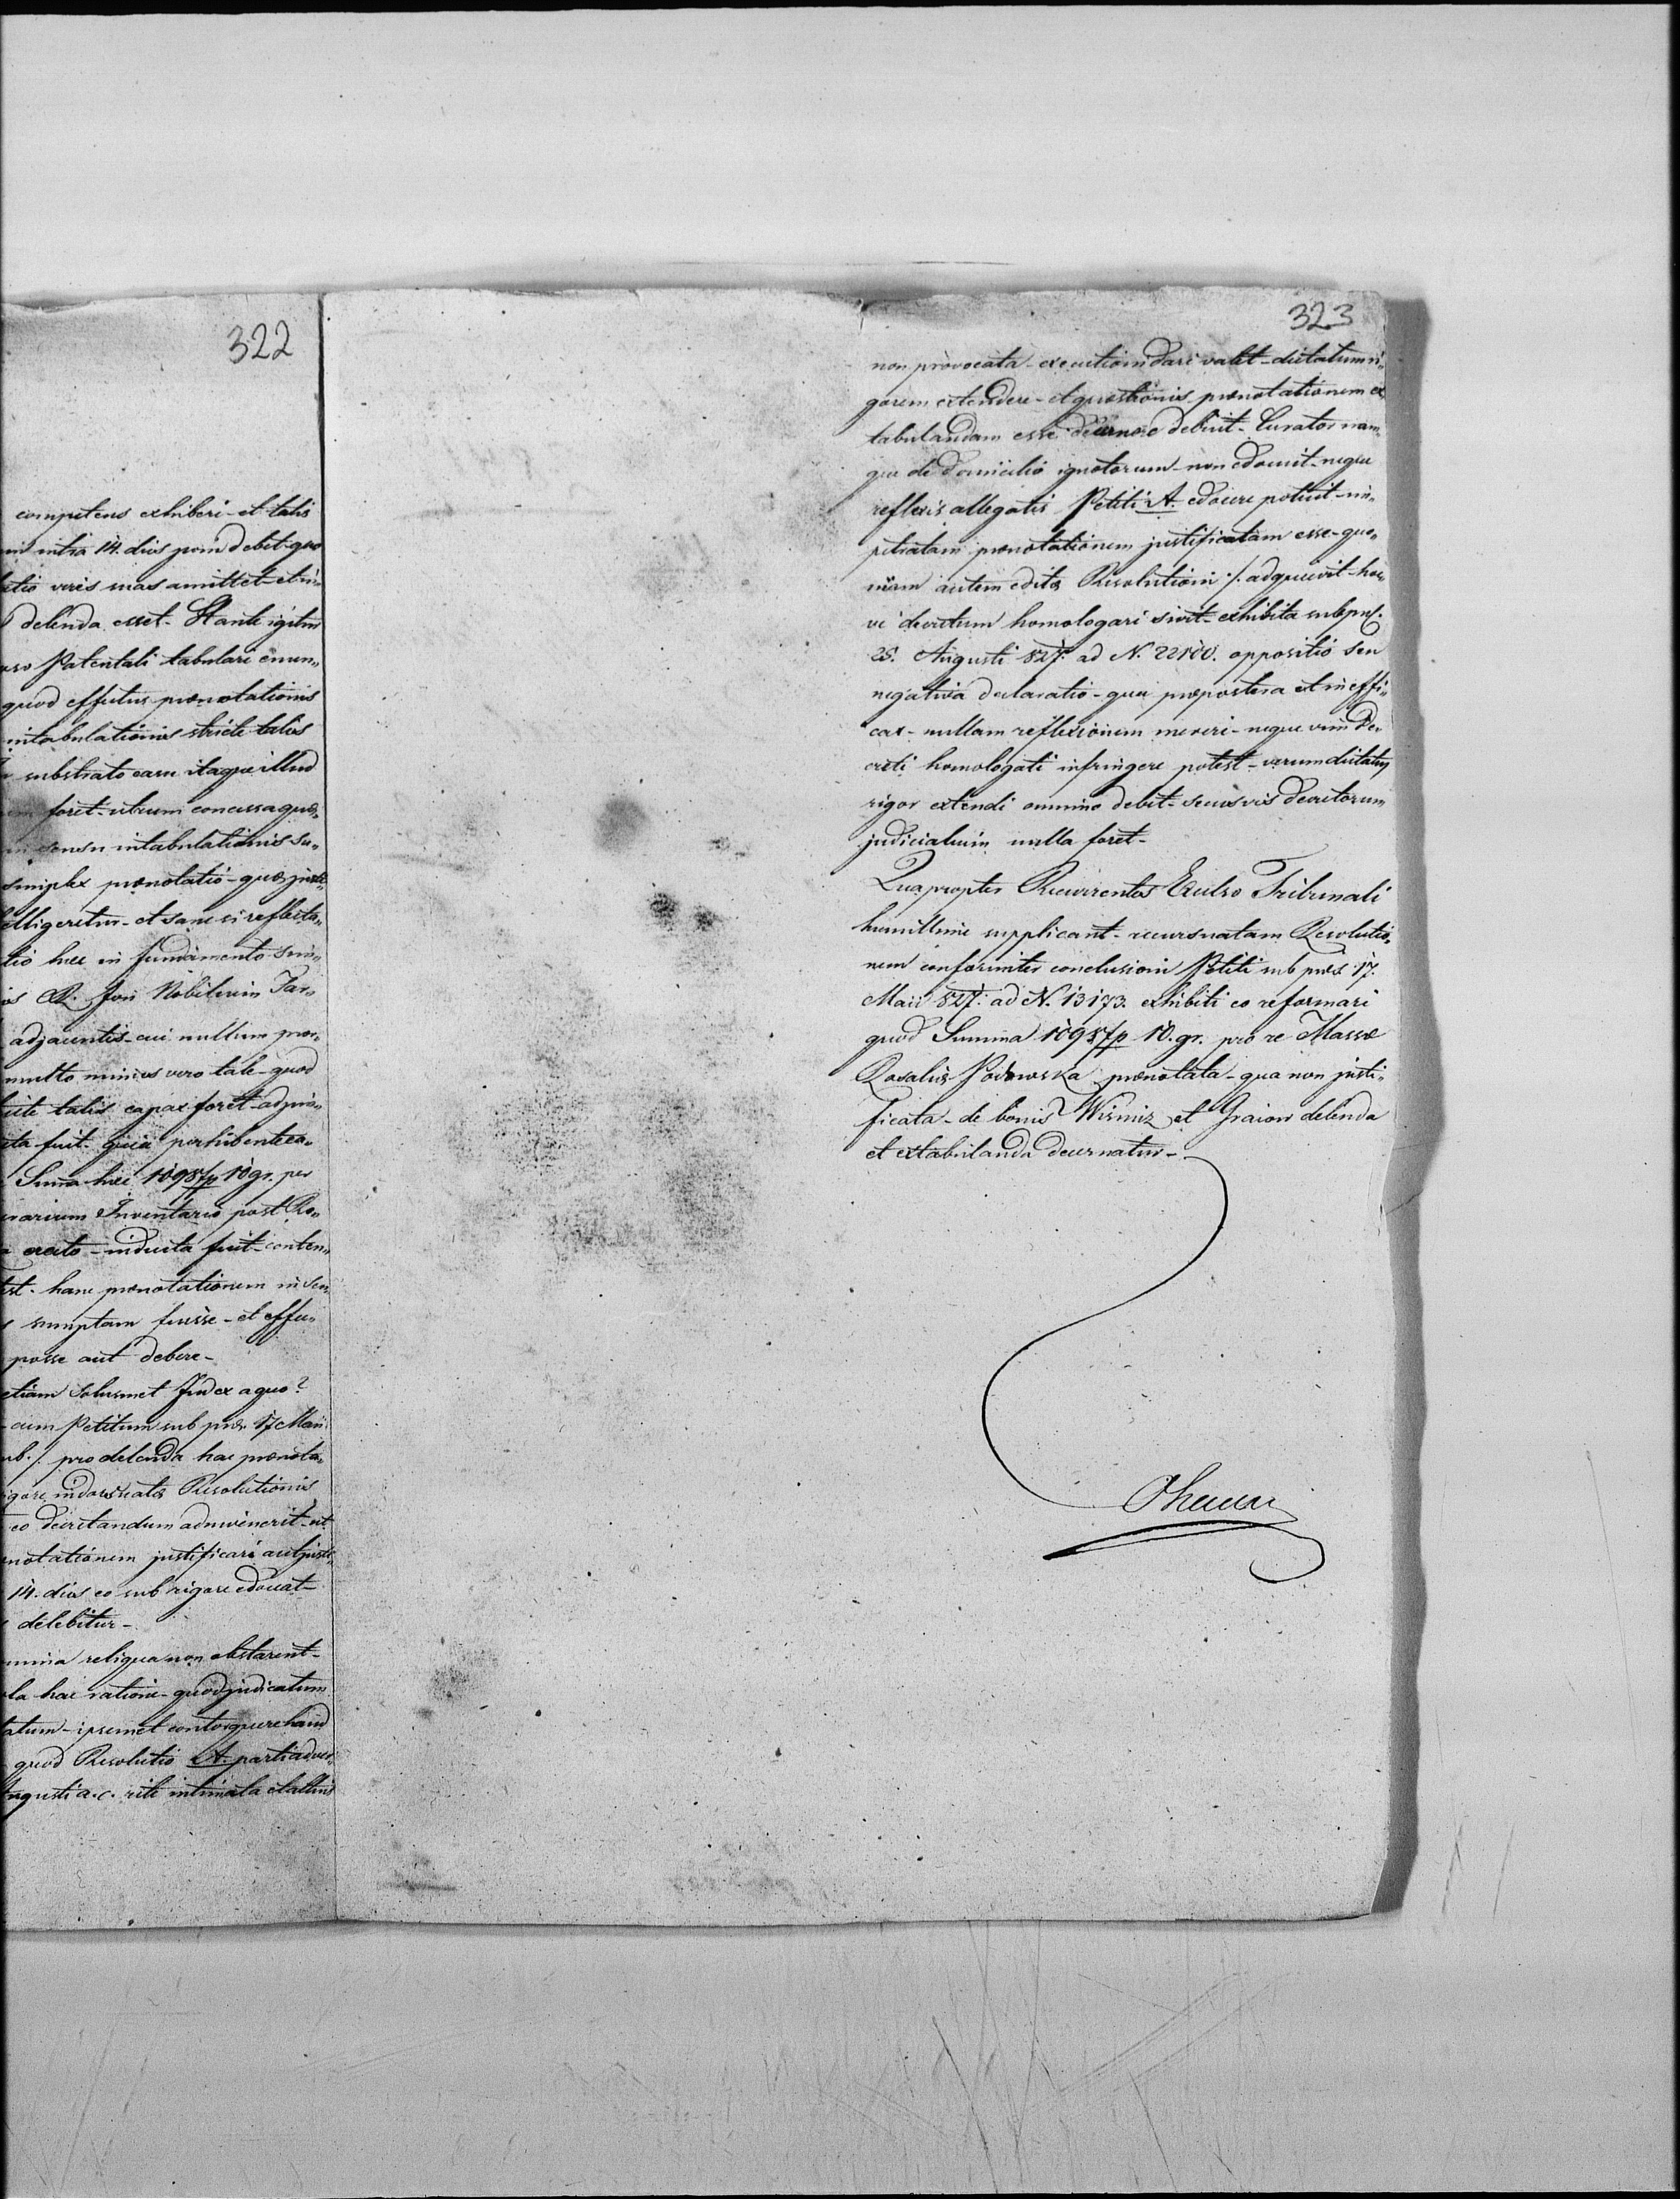 322
competens exhiberi - et talis
intra 14. dies poni debet - quo
vires suas amittet - et in„
delenda esset - Stante igitur
Patentali tabulari enun„
quod effectus prænotationis
intabulationis stricte talis
substrato casu itaque illud
foret - utrum concessa quæ„
sensu intabulationis su„
simplex prænotatio - quæ
elligeretur - et sane si reflecta„
tio hæc in fundamento
Jos Nobilium Tar„
adjacentis - cui nullum
multo minus vero tale - quod
talis capax foret
fuit - quia perhibente
Summa hæc 1098 fp 10 gr. per
Inventario post Ro„
erecto - inducta fuit - conten„
est - hanc prænotationem in sen„
sumptam fuisse - et effec„
posse aut debere -
etiam solusmet Judex a quo?
- cum Petitum sub præs. 17 Maii
pro delenda hac prænota„
indorsatæ Resolutionis
eo decretandum adinvenerit - ut
notationem justificari aut justi„
14. dies eo sub rigore edoceat -
delebitur -
omnia reliqua non obstarent -
hac ratione - quod judicatum
ipsemet contorquere haud
quod Resolutio A. parti adver„
Augusti a. c. rite intimata
323
non provocata - executioni dari valet - dictatum ri„
gorem extendere - et quæstionis prænotationem ex„
tabulandam esse decernere debuit - Curator nam„
que de domicilio ignotorum - non edocuit - neque
reflexis allegatis Petiti A. edocere potuit - im„
petratam prænotationem justificatam esse - quo„
niam autem editæ Resolutioni ·/. adquievit - hoc„
ve decretum homologari sivit - exhibita sub præs.
28. Augusti 827. ad N. 22180. oppositio seu
negativa declaratio - qua præpostera et ineffi„
cax - nullam reflexionem mereri - neque vim de„
creti homologati infringere potest - verum dictatus
rigor extendi omnino debet - secus vis decretorum
judicialium nulla foret -
Quapropter Recurrentes Exculso Tribunali
humillime supplicant - recursuatam Resolutio„
nem conformiter conclusioni Petiti sub præs. 17.
Maii 827. ad N. 13173. exhibiti eo reformari
quod Summa 1098 fp 10. gr. pro re Massæ
Rosaliæ Podowska prænotata - qua non justi„
ficata - de bonis Wismiz et Graiow delenda
et extabulanda decernatur -